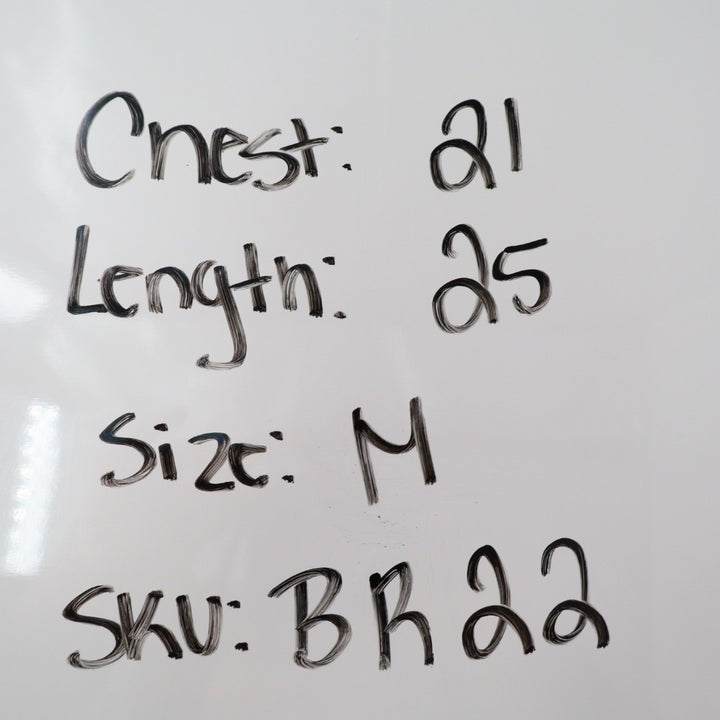 Chest: 21
Length: 25
Size: M
SKU: BR22